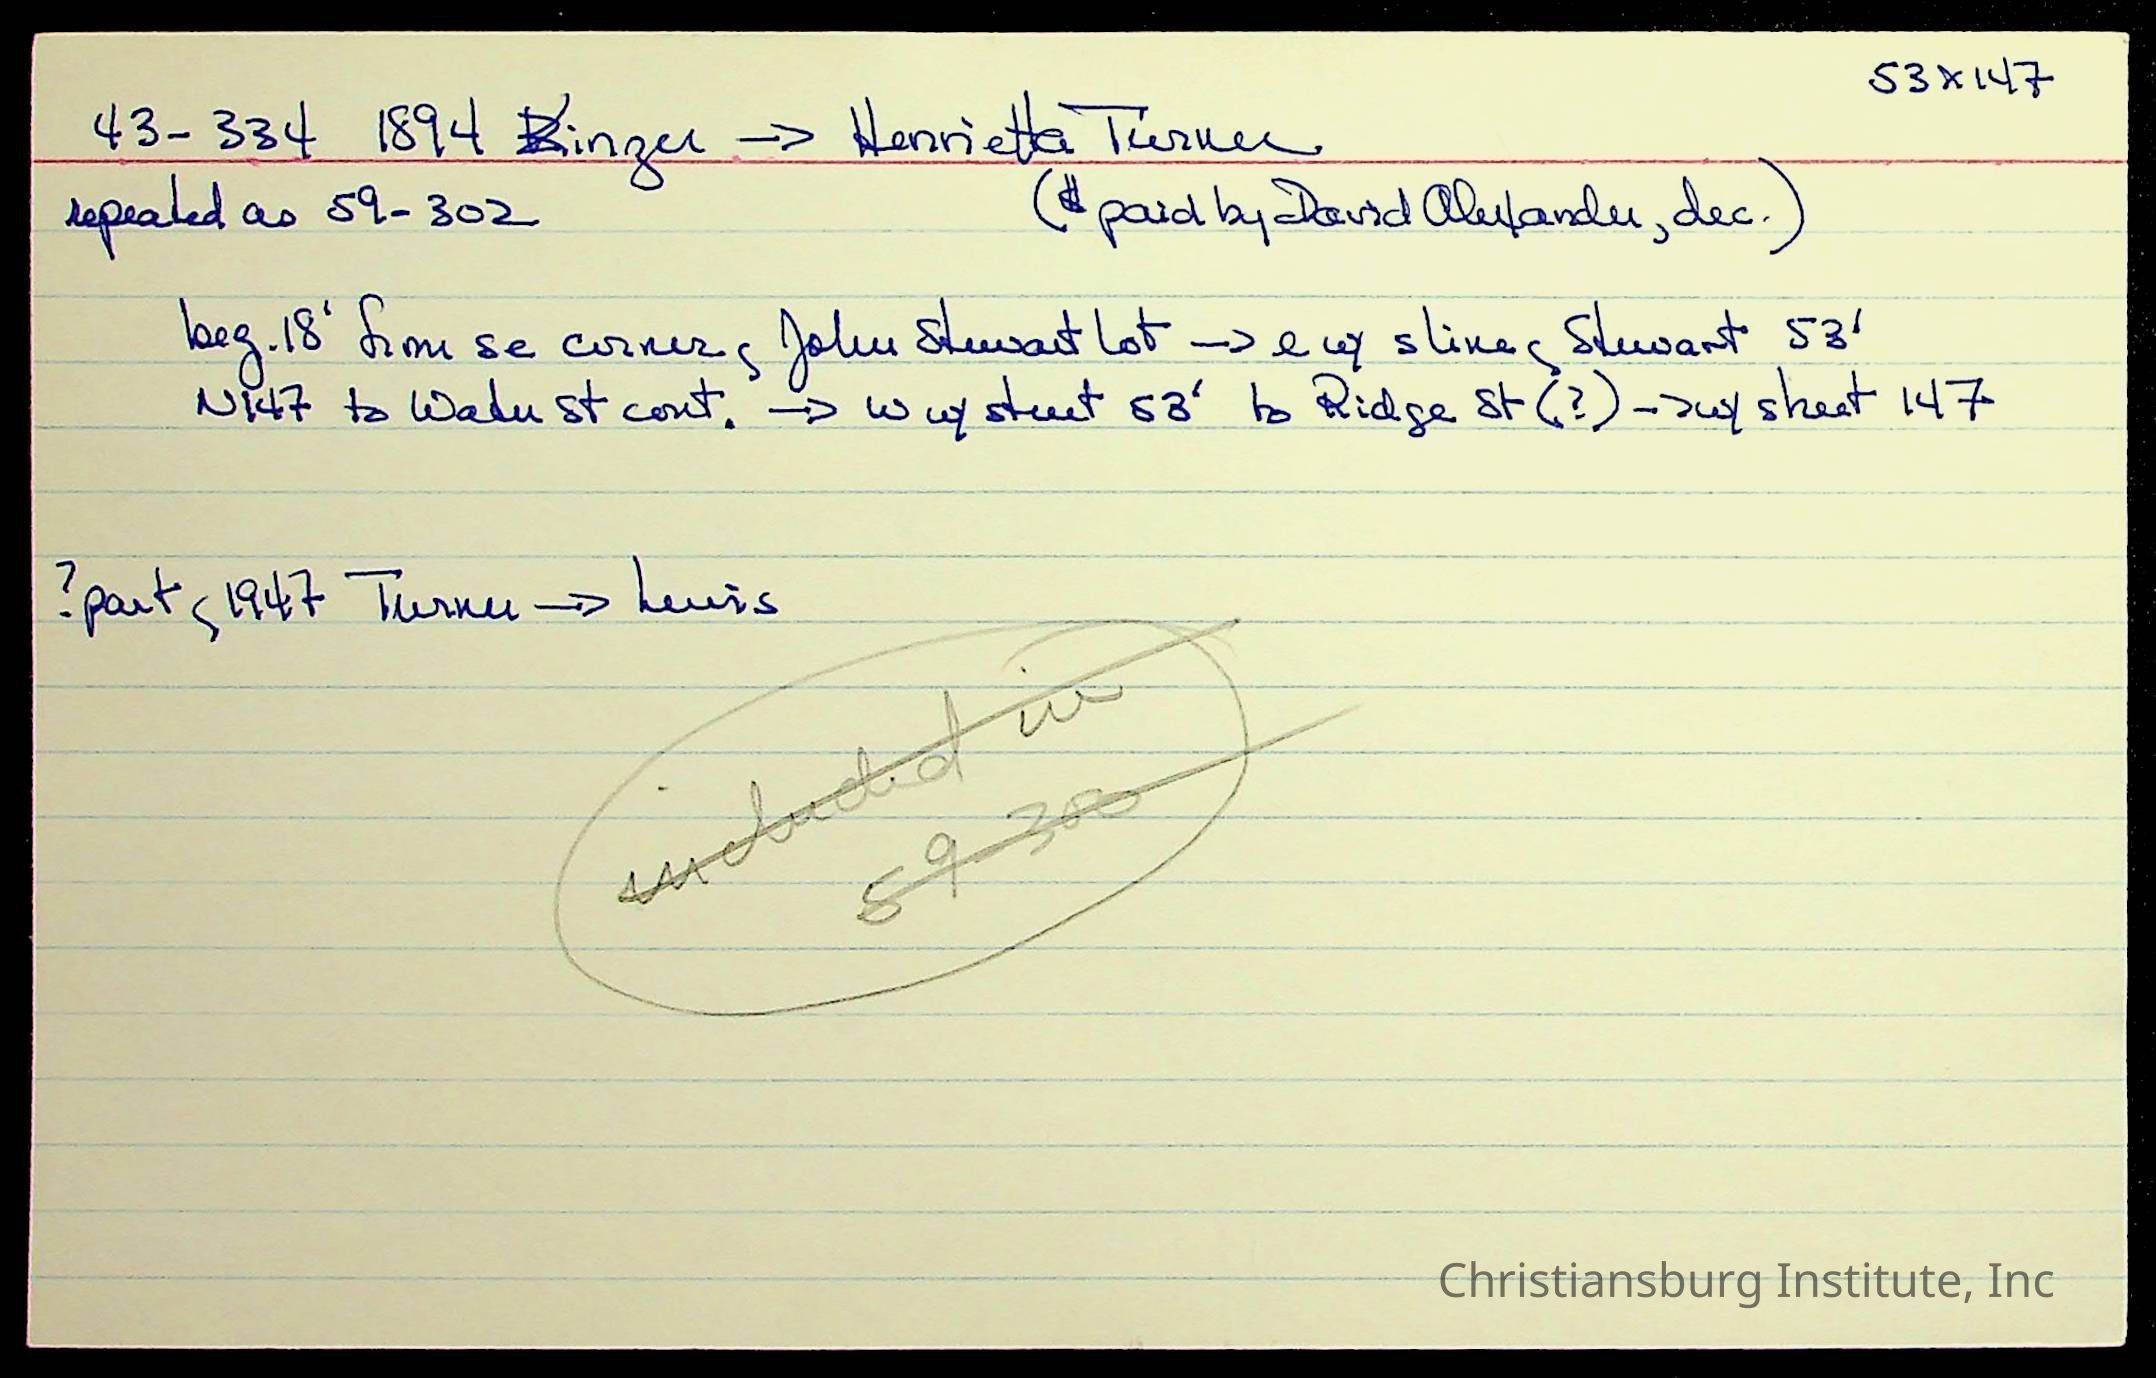 53 x 147
43-334 1894 Kinzer → Henrietta Turner
repeated as 59-302 ($ paid by David Alexander, dec.)
beg. 18' from se corner of John Stewart lot → e w/ s line of Stewart 53'
N147 to Water St cont. → w w/ street 53' to Ridge St (?) → w/ street 147
? part of 1947 Turner → Lewis
included in
59-300
Christiansburg Institute, Inc